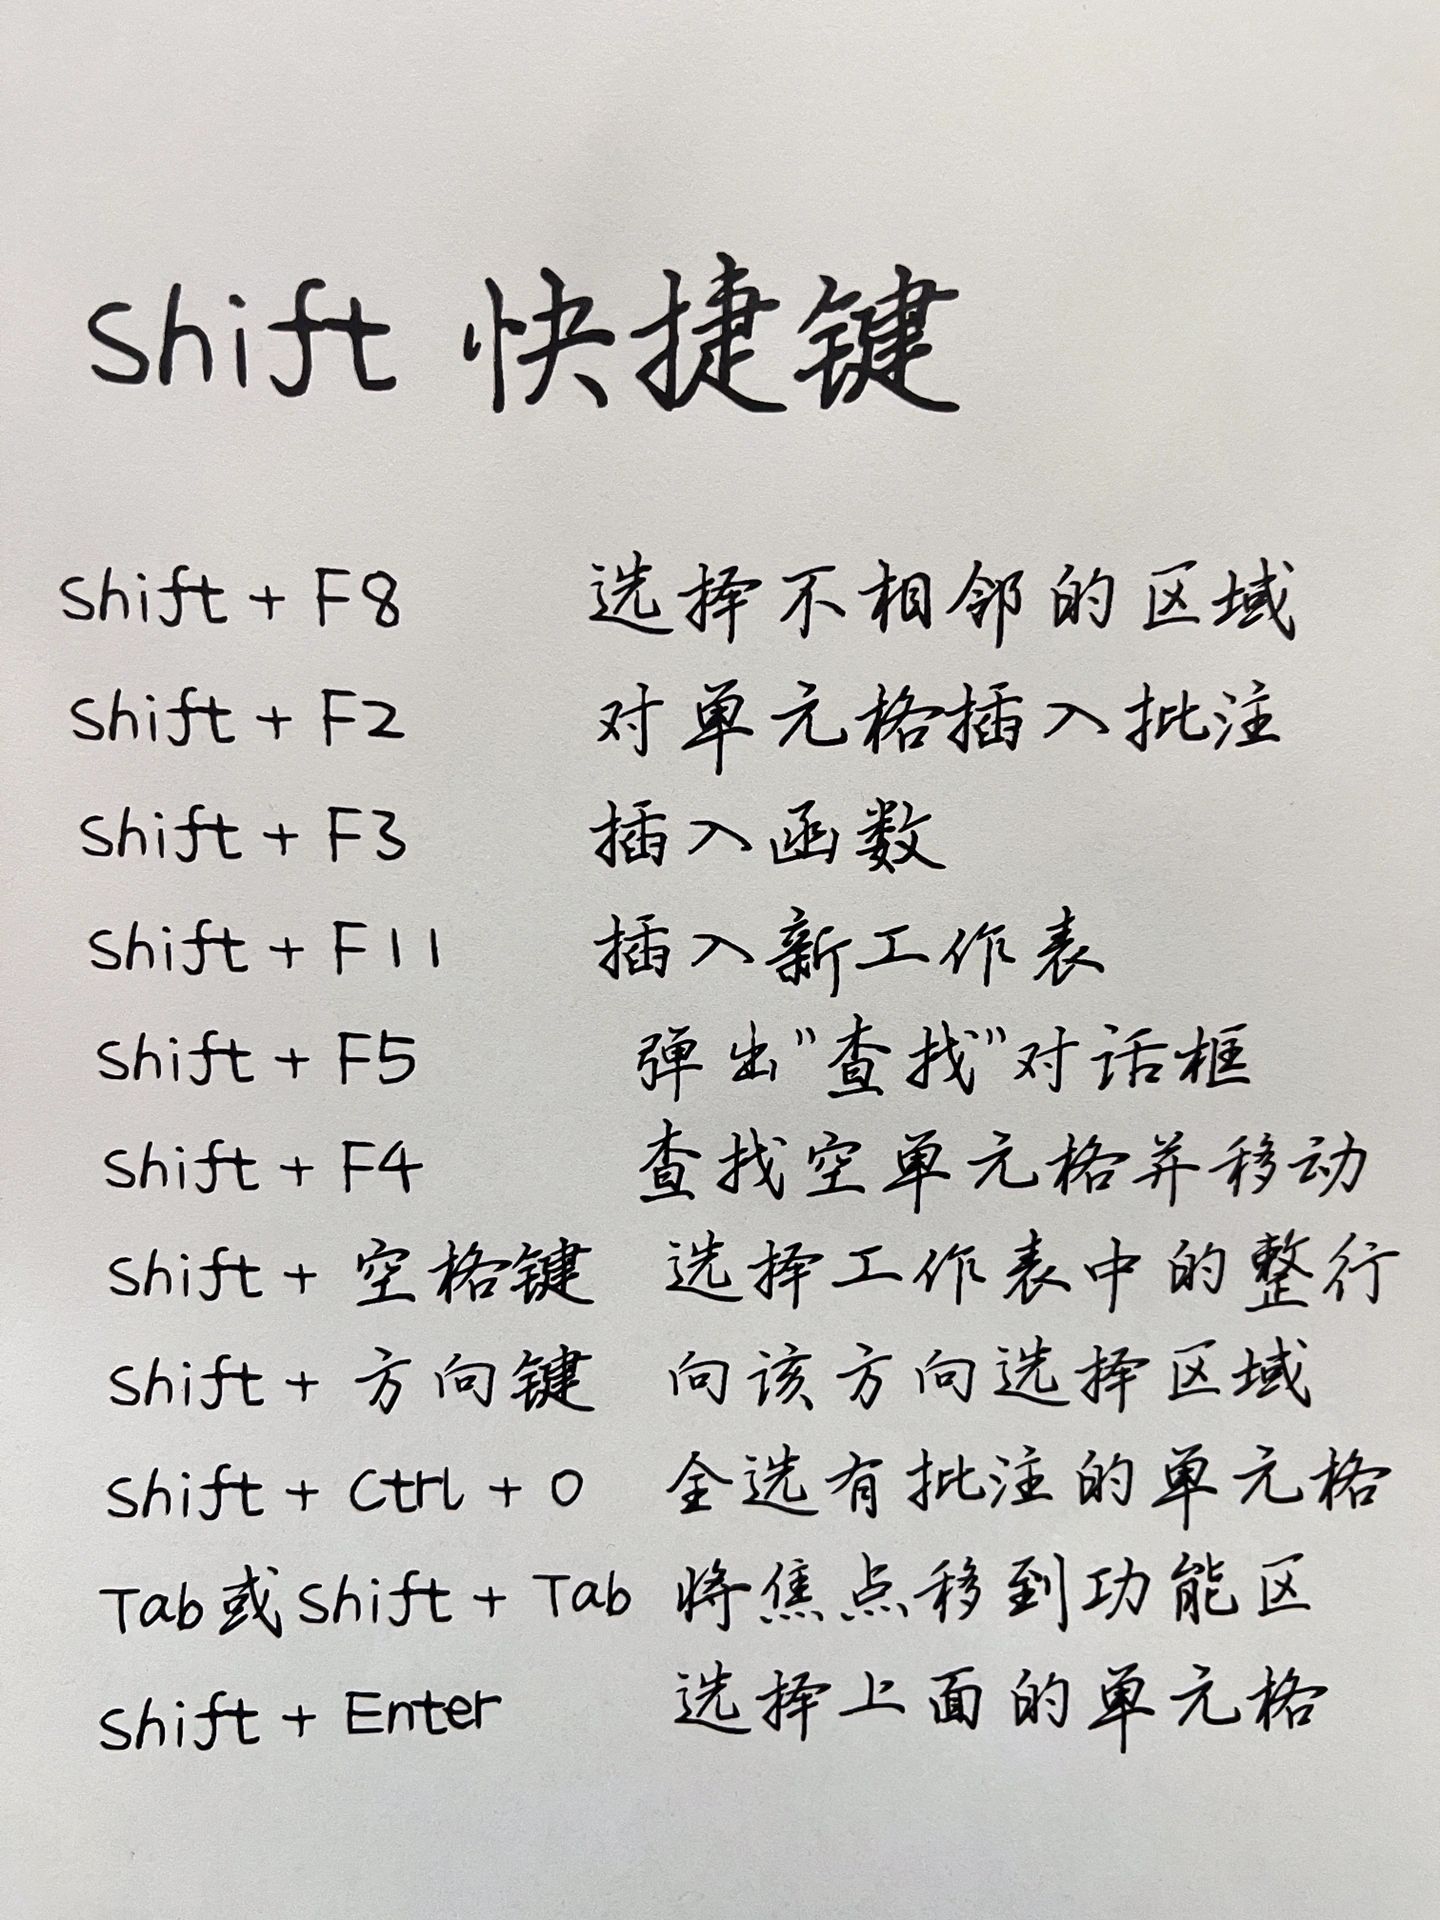 Shift 快捷键
Shift + F8 选择不相邻的区域
Shift + F2 对单元格插入批注
Shift + F3 插入函数
Shift + F11 插入新工作表
Shift + F5 弹出"查找"对话框
Shift + F4 查找空单元格并移动
Shift + 空格键 选择工作表中的整行
Shift + 方向键 向该方向选择区域
Shift + Ctrl + O 全选有批注的单元格
Tab或Shift + Tab 将焦点移到功能区
Shift + Enter 选择上面的单元格